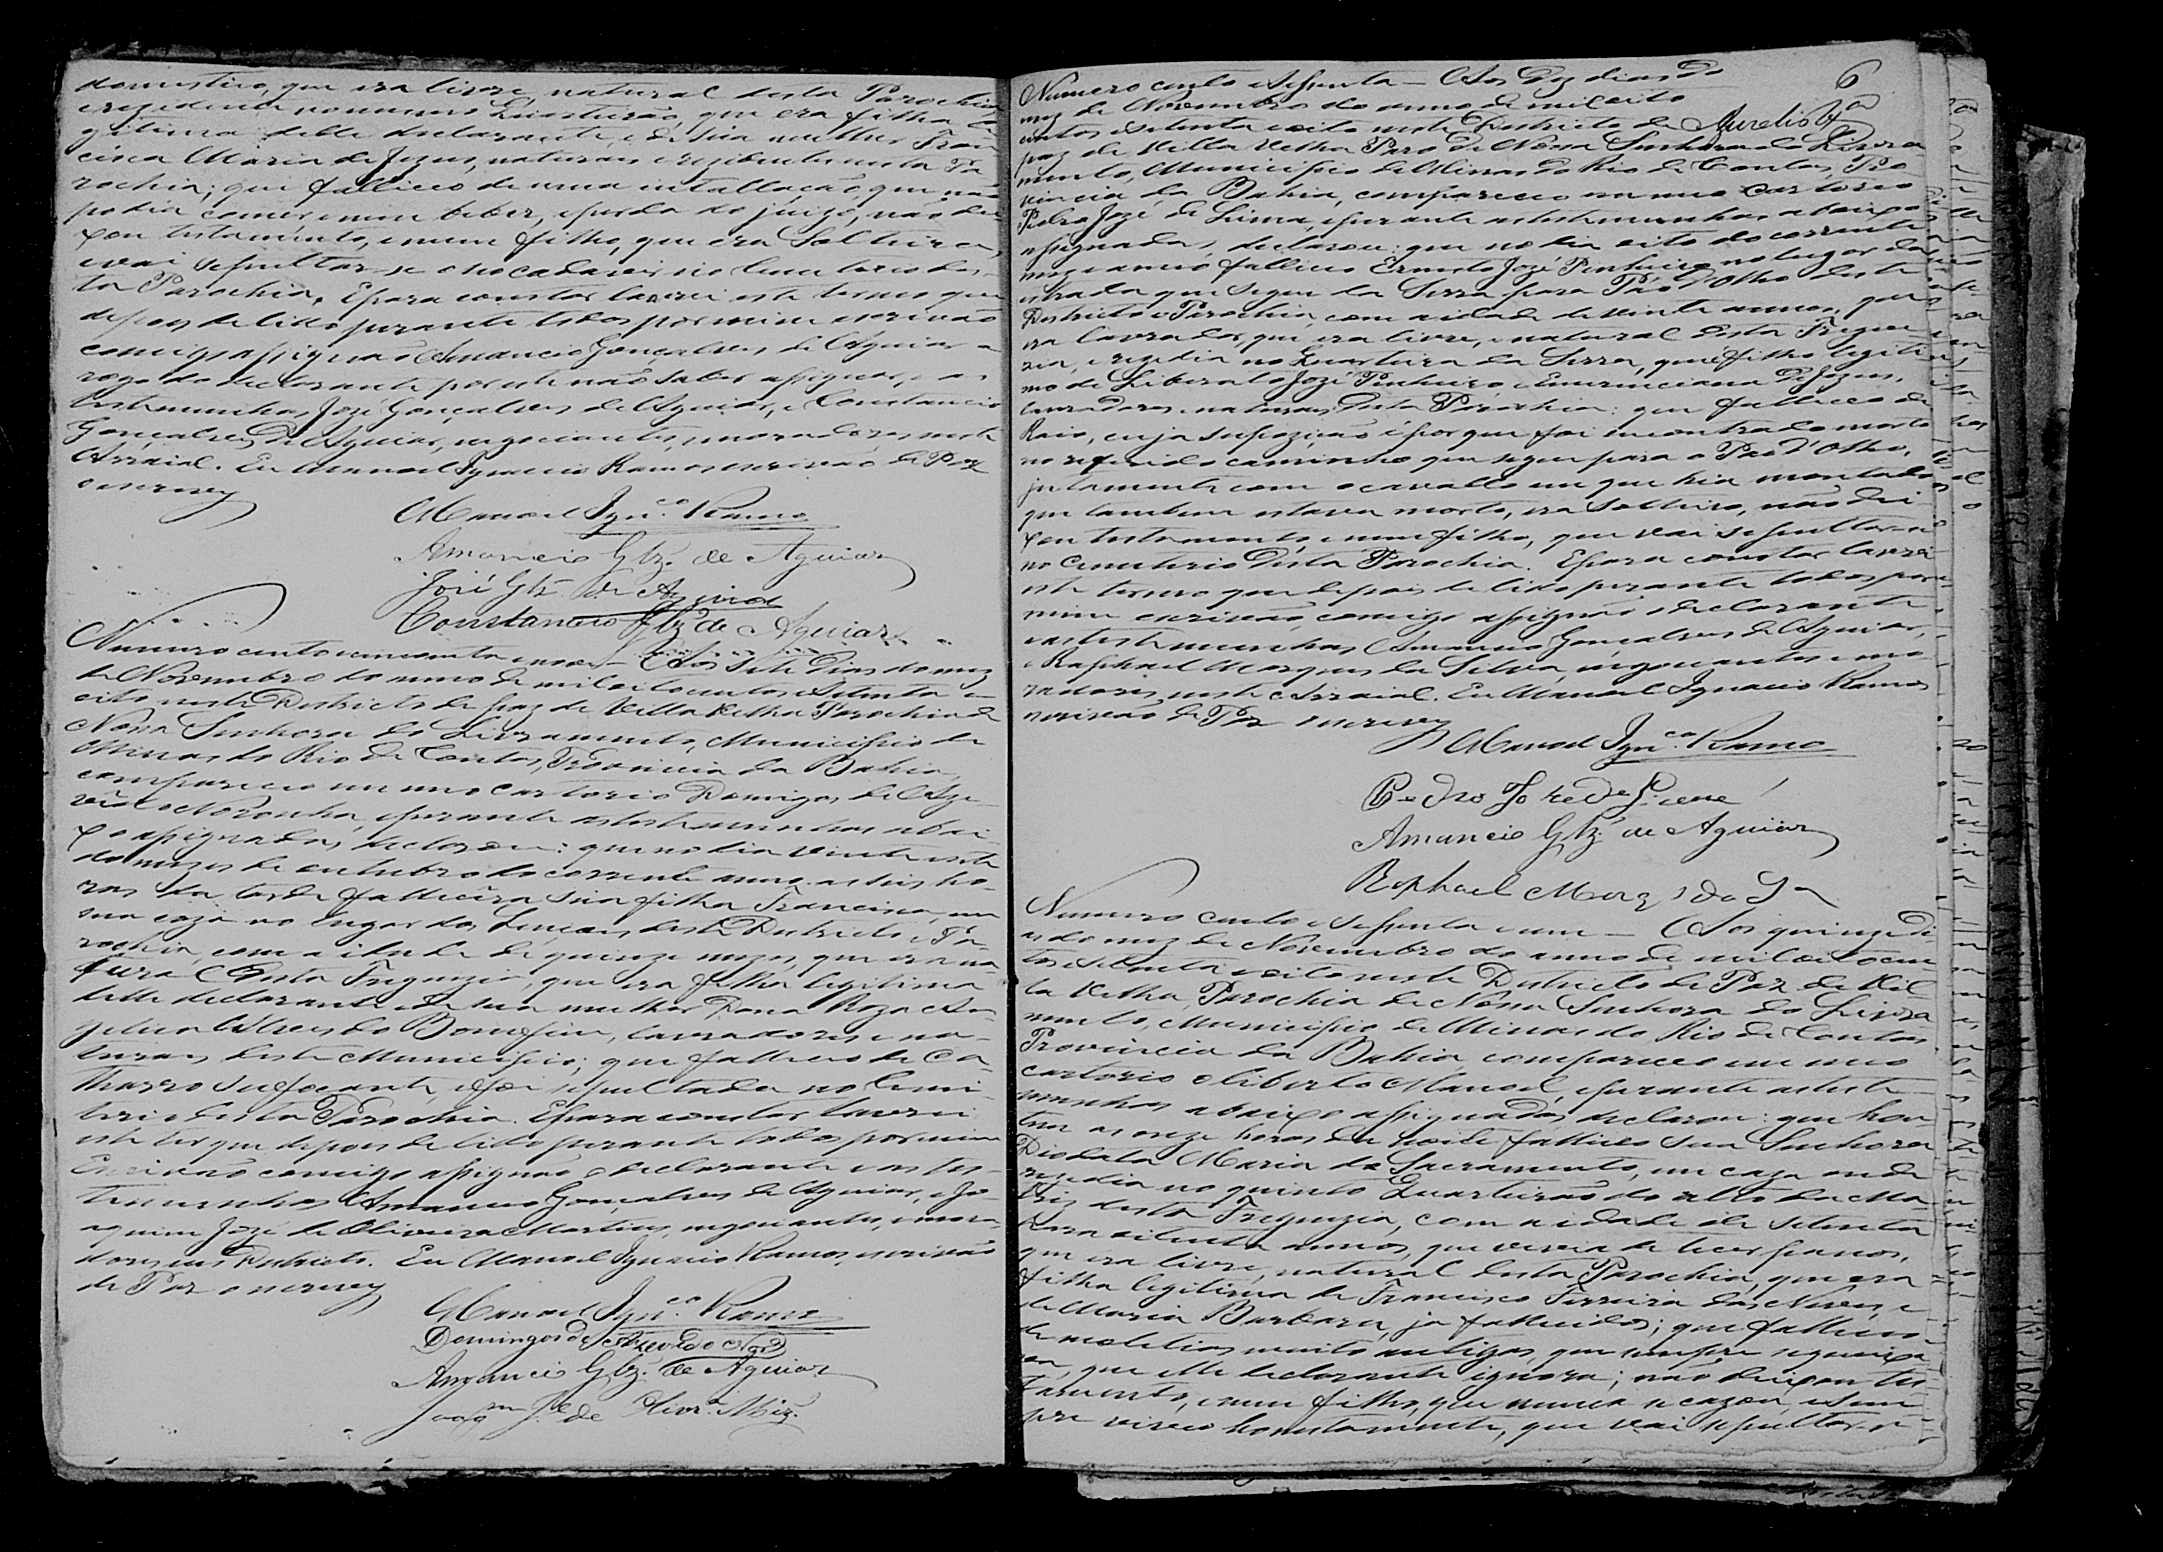 domestico, que era livre natural desta Parochia
e rezidencia no mesmo Quarteirão, que era filha le
gitima delle declarante, e de sua mulher Fran
cisca Maria de Jezus, naturaes e rezidentes nesta Pa
rochia; que falleceo de uma que não
podia comer e nem beber, e perda do juizo, não dei
xou testamento, e nem filho, que era Solteira,
e vai sepultar-se o seo cadaver no Cemiterio des-
ta Parochia. E para constar lavrei este termo que
depois de lido perante todos por mim escrivão
comigo assignão Amancio Gonçalves de Aguiar a
rogo do declarante por este não saber assignar, e as
testemunhas José Gonçalves de Aguiar, e Constancio
Gonçalves de Aguiar, negociantes, e moradores neste
Arraial. Eu Manoel Ignacio Ramos escrivão de Paz
o escrevy
Manoel Ign.co Ramos
Amancio Glz. de Aguiar
José Glz de Aguiar
Constancio Glz de Aguiar
Numero cento e cincoenta e nove - Aos Sete Dias do mez
de Novembro do anno de mil oitocentos e Setenta e
oito neste Districto de paz de Villa Velha Parochia de
Nossa Senhora do Livramento, Municipio de
Minas do Rio de Contas, Provincia da Bahia,
compareceo em meo cartorio Domingos de Aze-
vêdo Noronha, e perante as testemunhas abai
xo assignadas, declarou: que no dia vinte e sete
do mez de outubro do corrente anno as seis ho-
ras da tarde fallecêra sua filha Francisca, em
sua caza no lugar dos Lençóes deste Districto e Pa-
rochia, com a idade de quinze mezes, que era na-
tural desta Freguezia, que era filha legitima
delle declarante e de sua mulher Dona Roza An-
gelica Alves do Bomfim, lavradores e na-
turaes deste Municipio; que falleceo de Ca-
tharro sufocante, e foi sepultada no Cemi-
terio desta Parochia. E para constar lavrei
este ter que depois de lido perante todos por mim
Escrivão comigo assignão o declarante e as tes-
temunhas Amancio Gonçalves de Aguiar, e Jo-
aquim José de Oliveira Martins, negociantes, e mora-
dores neste Districto. Eu Manoel Ignacio Ramos, escrivão
de Paz o escrevy
Manoel Ign.co Ramos
Domingos de Azevedo
Amancio Glz. de Aguiar
Joaqm Je de Olivra Miz.
6
Numero cento e Sessenta - Aos Dez dias do
mez de Novembro do anno de mil oito
centos e Setenta e oito neste Districto de Aurelio
paz de Villa Velha Paro de Nossa Senhora do Livra-
mento, Municipio de Minas do Rio de Contas, Pro
vincia da Bahia, compareceo em meo Cartorio
Pedro José de Lima, e perante as testemunhas abaixo
assignadas, declarou: que no dia oito do corrente
mez e anno falleceo Ernesto José Pinheiro no lugar da
estrada que segue da Serra para Páo d'Olho deste
Districto e Parochia, com a idade de vinte annos, que
era lavrador, que era livre, e natural desta Fregue
zia, e rezidia no Quarteirão da Serra, que é filho legiti
mo de Liberato José Pinheiro e Emerenciana de Jezus,
lavradores, e naturaes desta Parochia: que falleceo de
Raio, cuja supozição é por que foi encontrado morto
no referido caminho que segue para o Páo d'Olho,
juntamente com o cavallo em que hia montado
que tambem estava morto, era Solteiro, não dei
xou testamento, e nem filho, que vai sepultar-se
no Cemiterio desta Parochia. E para constar lavrei
este termo que depois de lido perante todos por
mim escrivão, comigo assignão o declarante
e as testemunhas Amancio Gonçalves de Aguiar,
e Raphael Marques da Silva, negociantes e mo
radores neste Arraial. Eu Manoel Ignacio Ramos
escrivão de Paz o escrevy
Manoel Ign.co Ramos
Pedro Joze de Lima
Amancio Glz. de Aguiar
Raphael Marqs da Sa
Numero cento e Sessenta e um - Aos quinze di-
as do mez de Novembro do anno de mil oitocen
tos e Setenta e oito neste Districto de Paz de Vil-
la Velha, Parochia de Nossa Senhora do Livra
mento, Municipio de Minas do Rio de Contas
Provincia da Bahia compareceo em meo
cartorio o liberto Manoel, e perante as teste
munhas abaixo assignadas declarou: que hon
tem as onze horas da noite falleceo sua Senhora
Diodata Maria do Sacramento, em caza onde
rezidia no quinto Quarteirão do alto da Ma
triz desta Freguezia, com a idade de setenta
para oitenta annos, que vivia de tecer panos,
que era livre, natural desta Parochia, que era
filha legitima de Francisco Ferreira das Neves, e
de Maria Barbara, ja fallecidos; que falleceo
de molestias muito antigas, que sempre se queixa
va, que elle declarante ignora; não deixou tes
tamento, e nem filho, que nunca se cazou, e sem
pre viveo honestamente, que vai sepultar-se